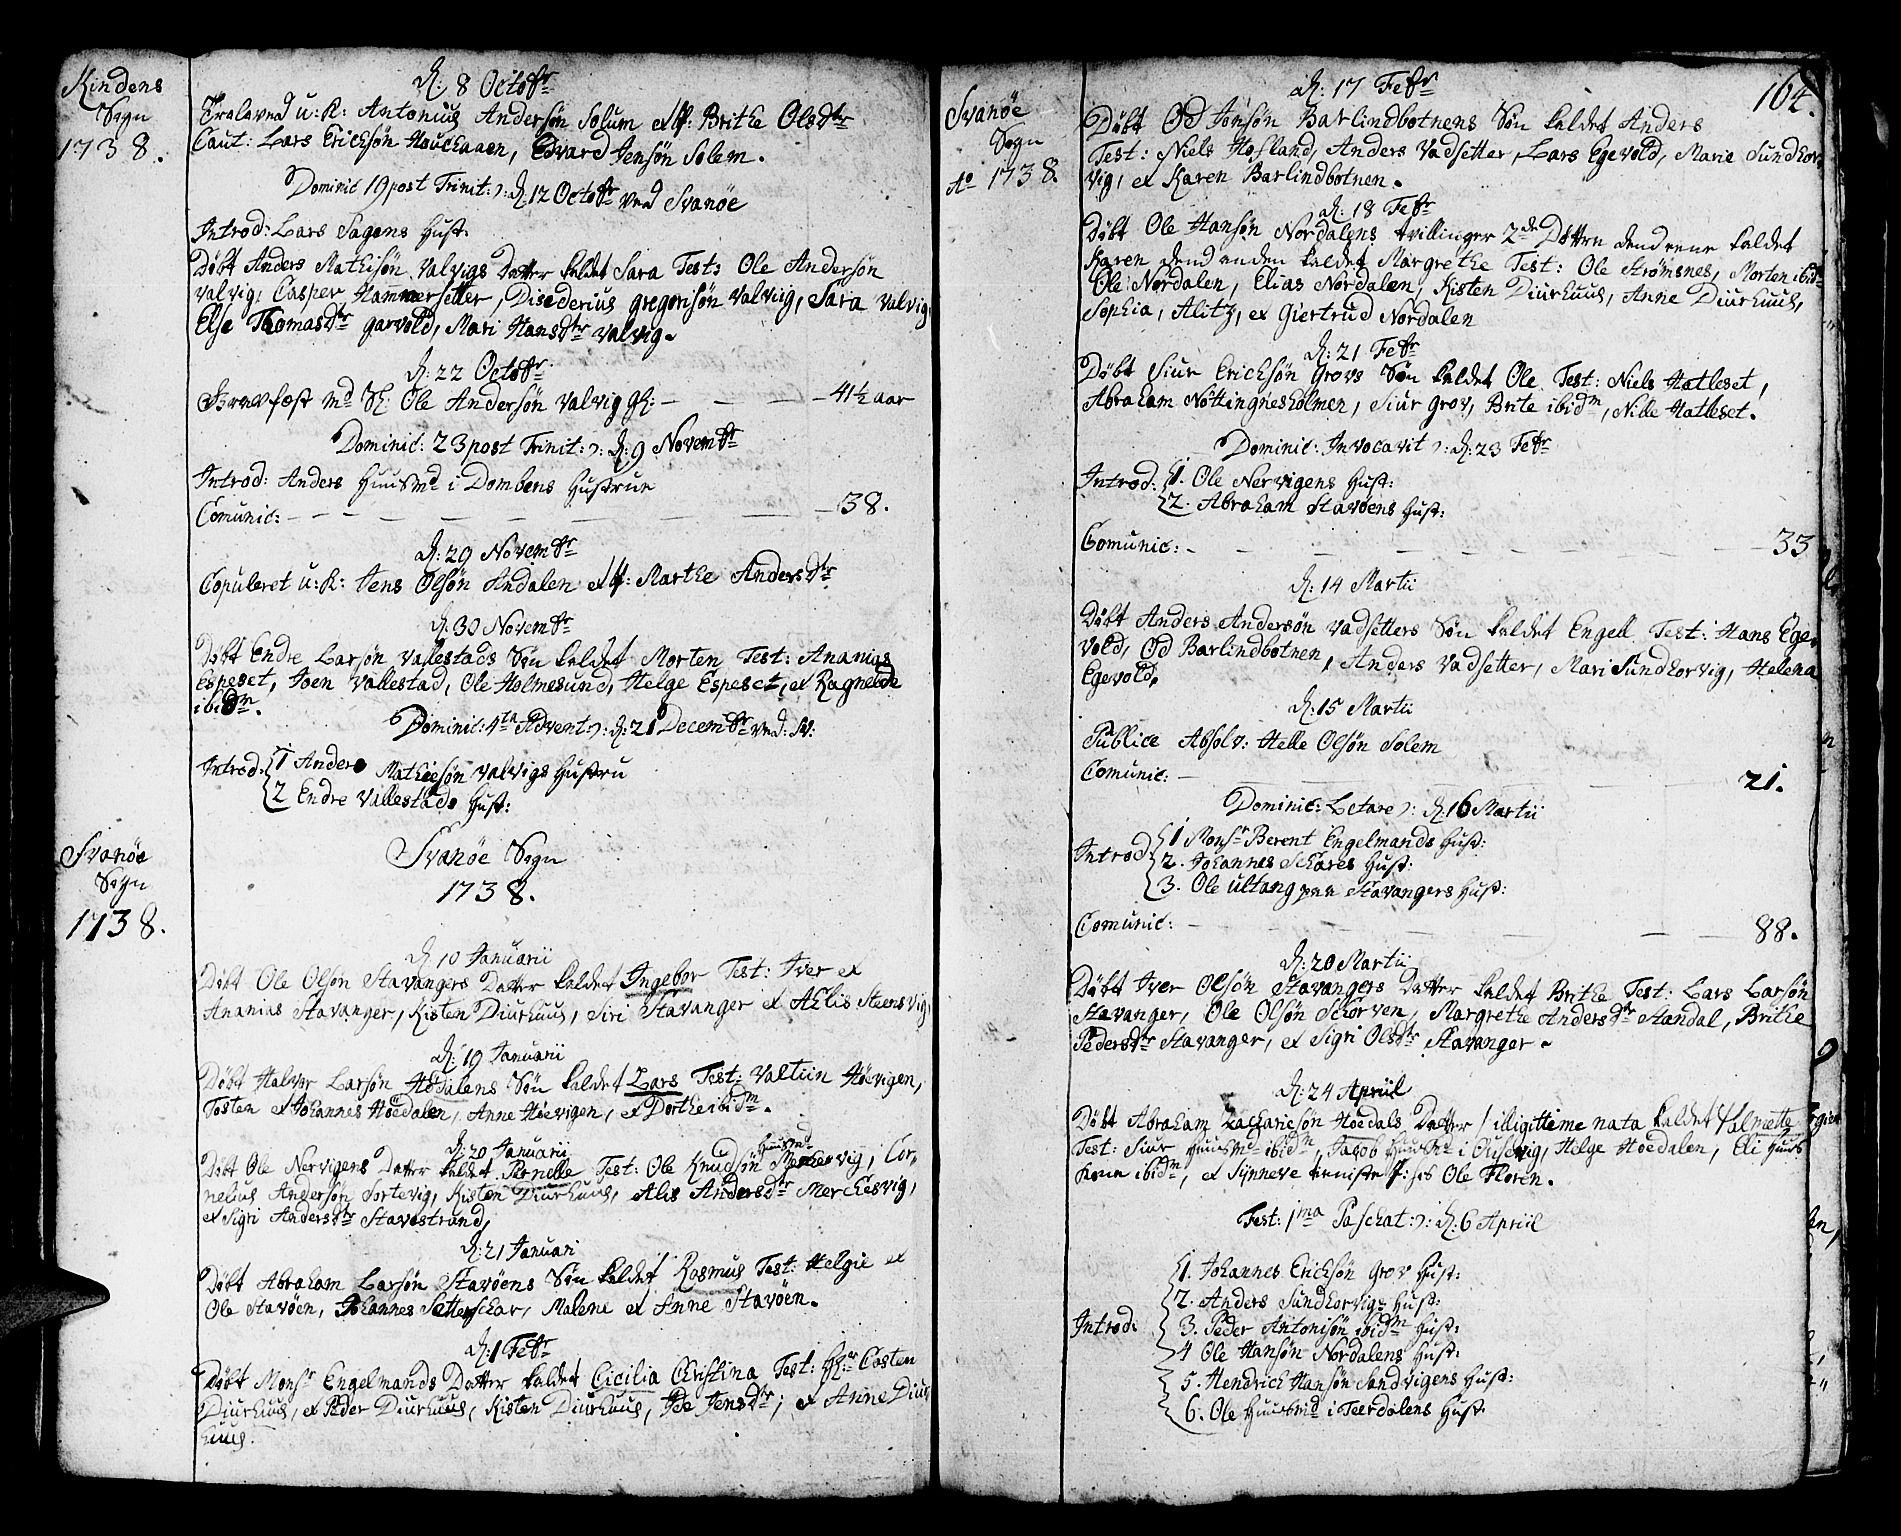 Kindens
Sogn
1738.
d: 8 Octobr
Troloved u: K: Antonius Andersøn Solum et Brithe Olsdtr
Caut: Lars Erichsøn Houchaaen, Edvard Jensøn Solem.
Dominic 19 post Trinit: ɔ: d: 12 Octobr ved Svanöe
Introd: Lars Sagens Hust:
Døbt Anders Mathisøn Valvigs Datter kaldet Sara Test: Ole Andersøn
Valvig, Casper Hammersetter, Disederius gregorisøn Valviig, Sara Valvig,
Else Thomasdtr garvold, Mari Hansdtr Valvig.
d: 22 Octobr
Gravfæst Md Sl: Ole Andersøn Valvig gl: — — — 41½ aar
Dominic: 23 post Trinit: ɔ: d: 9 Novembr
Introd: Anders Huusmd i Dombens Hustrue
Comunic: — — — 38.
d: 29 Novembr
Copuleret u: K: Jens Olsøn Indalen et Marthe Andersdtr
d: 30 Novembr
Døbt Endre Larsøn Vallestads Søn kaldet Morten Test: Ananias
Espeset, Joen Vallestad, Ole Holmesund, Helge Espeset, et Ragnelde
ibidm.
Dominic: 4ta Advent ɔ: d: 21 Decembr ved: Sv:
Introd: 1 Anders Mathiesøn Valvigs Hustru
2 Endre Vallestads Hust:
Svanøe
Sogn
1738.
Svanöe Sogn
1738.
d: 10 Januarii
Døbt Ole Olsøn Stavangers Datter kaldet Ingebor Test: Iver et
Ananias Stavanger, Kisten Diurhuus, Siri Stavanger et Aelis Steensvig,
d: 19 Januarii
Døbt Halvor Larsøn Høedalens Søn kaldet Lars Test: Valtiin Høevigen,
Tosten et Johannes Höedalen, Anne Høevigen, et Dorthe ibidm.
d: 20 Januarii
Døbt Ole Nervigens Datter kaldet Pernelle Test: Ole Knudsøn Huusmd Merchesvig, Cor-
nelius Andersøn Sortevig, Kisten Diurhuus, Alis Andersdtr Merchesvig,
et Sigri Andersdtr Stavestrand,
d: 21 Januari
Døbt Abraham Larsøn Stavøens Søn kaldet Rasmus Test: Helgie et
Ole Stavøen, Johannes Setterschar, Malene et Anne Stavöen.
d: 1 Febr
Døbt Monsr Engelmands Datter kaldet Cicilia Christina Test: Hr: Casten
Diurhuus, et Peder Diurhuus, Kisten Diurhuus, Ide Jensdtr; et Anne Diur
huus.
Svanöe
Sogn
Ao 1738.
164.
d: 17 Febr
Døbt Od Jonsøn Barlindbotnens Søn kaldet Anders
Test: Niels Hofland, Anders Vadsetter, Lars Egevold, Marie Sundhor
vig, et Karen Barlindbotnen.
d: 18 Febr
Døbt Ole Hansøn Nordalens tvillinger 2de Døttre dend eene kaldet
Karen dend anden kaldet Margrethe Test: Ole Strømsnes, Morten ibidm
Ole Nordalen, Elias Nordalen, Kisten Diurhuus, Anne Diurhuus,
Sophia, Alitz, et Giertrud Nordalen
d: 21 Febr
Døbt Siur Erichsøn Grovs Søn kaldet Ole Test: Niels Hatleset,
Abraham Nöttingnesholmen, Siur grov, Brite ibidm, Nille Hatleset.
Dominic: Invocavit ɔ: d: 23 Febr
Introd: 1. Ole Nervigens Hust:
2. Abraham Stavøens Hust:
Comunic: — — — 33
d: 14 Martii
Døbt Anders Andersøn Vadsetters Søn kaldet Engell Test: Hans Ege-
vold, Od Barlindbotnen, Anders Vadsetter, Mari Sundhorvig, Helena
Egevold,
d: 15 Martii
Publice Absolv: Helle Olsøn Solem
Comunic: — 21.
Dominic: Letare ɔ: d: 16 Martii
Introd: 1 Monsr Berent Engelmands Hust:
2. Johannes Schares Hust:
3. Ole ultang paa Stavangers Hust:
Comunic: — — — 88.
d: 20 Martii
Døbt Iver Olsøn Stavangers Datter kaldet Brithe Test: Lars Larsøn
Stavanger, Ole Olsøn Schorven, Margrethe Andersdtr Standal, Brithe
Pedersdtr Stavanger, et Sigri Olsdtr Stavanger.
d: 24 Apriil
Døbt Abraham Zachariesøn Høedals Datter / illigittime nata kaldet Malmette
Test: Siur Huusmd ibidm, Jacob Huusmd i Olisevig, Helge Hoedalen, Eli Huus
kone ibidm, et Synneve tieniste P: hos Ole Floren.
Fest: 1ma Paschat: ɔ: d: 6 Apriil
Introd: 1. Johannes Erichsøn Grov Hust:
2. Anders Sundhorvigs Hust:
3. Peder Antonisøn ibidm Hust:
4 Ole Hansøn Nordalens Hust:
5. Hendrich Hansøn Sandvigens Hust:
6. Ole Huusmd i Teerdalens Hust: